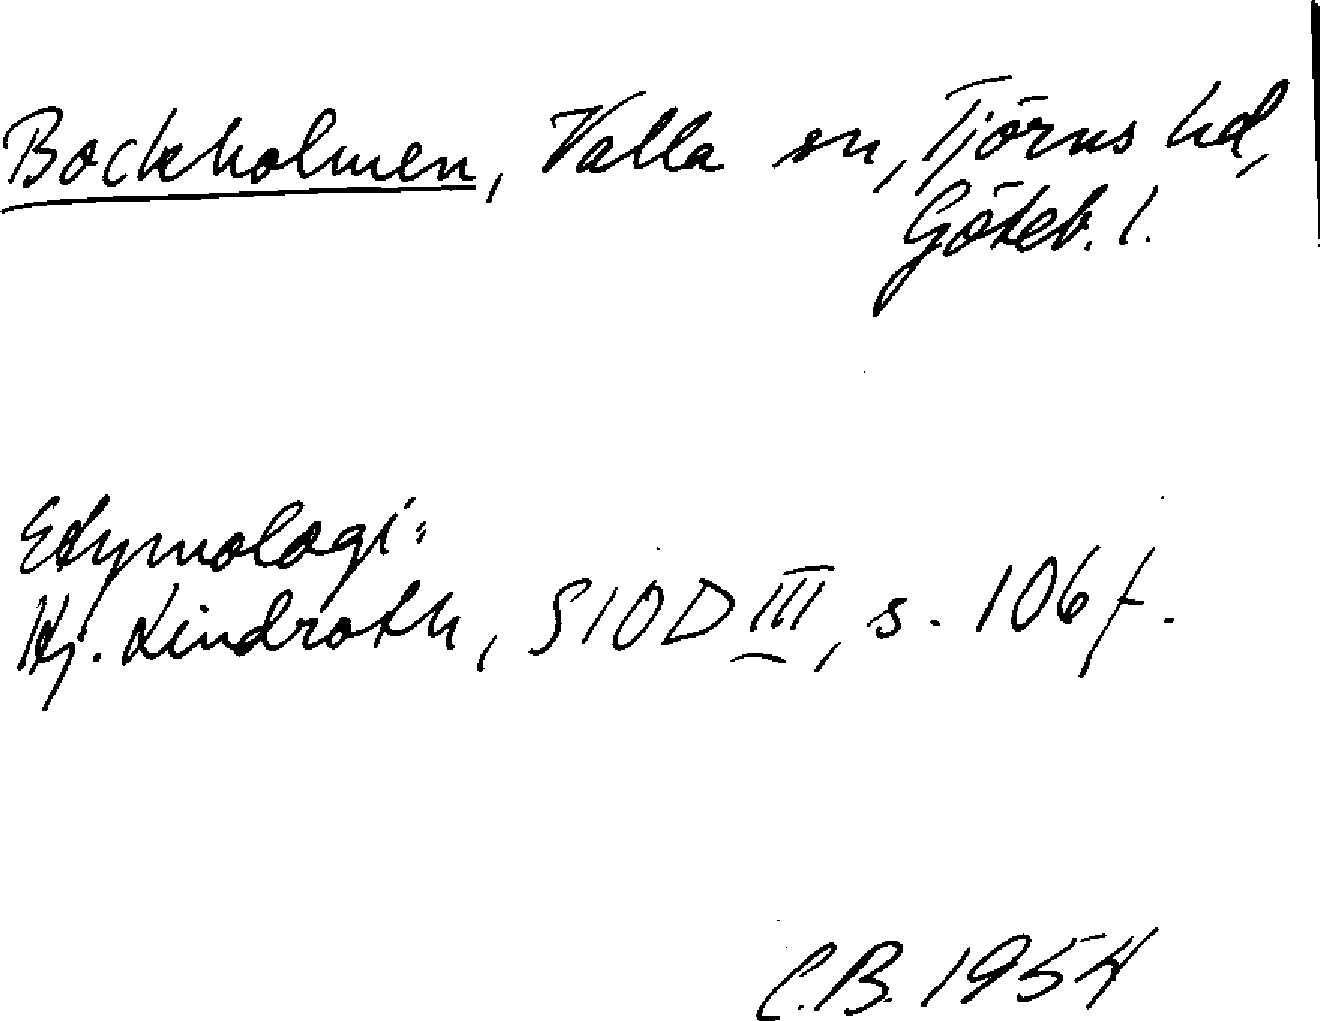 Bockholmen, Valla sn, Tjörns hd,
Göteb. l.
Etymologi:
Hj. Lindroth, SIOD III, s. 106 f.
C.B. 1954